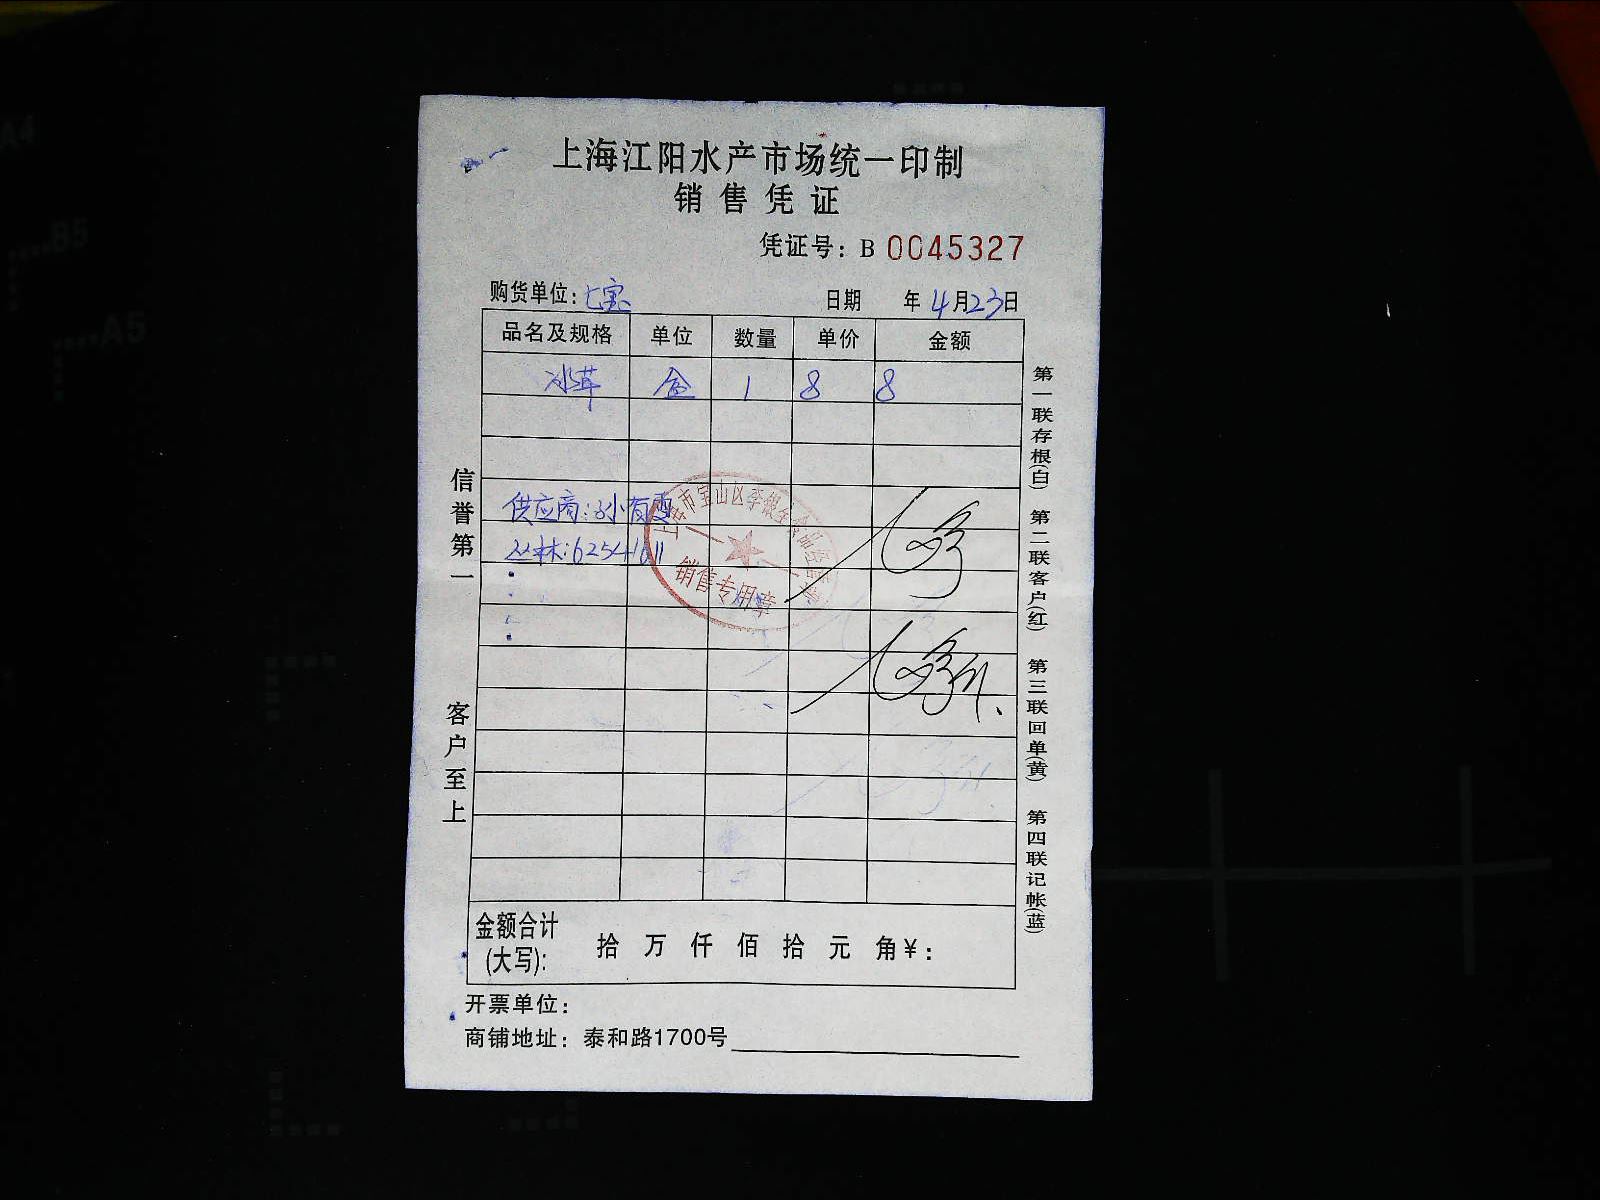 上海江阳水产市场统一印制
销售凭证
凭证号：B 0045327
购货单位：七宝 日期 年 4月23日
品名及规格 单位 数量 单价 金额
冰草 盒 1 8 8
供应商：孙有雯
丛林：62541611
上海市宝山区李银生食品经营部
销售专用章
信誉第一
客户至上
第一联存根(白)
第二联客户(红)
第三联回单(黄)
第四联记帐(蓝)
金额合计
(大写)： 拾 万 仟 佰 拾 元 角 ¥：
开票单位：
商铺地址：泰和路1700号
A4
B5
A5